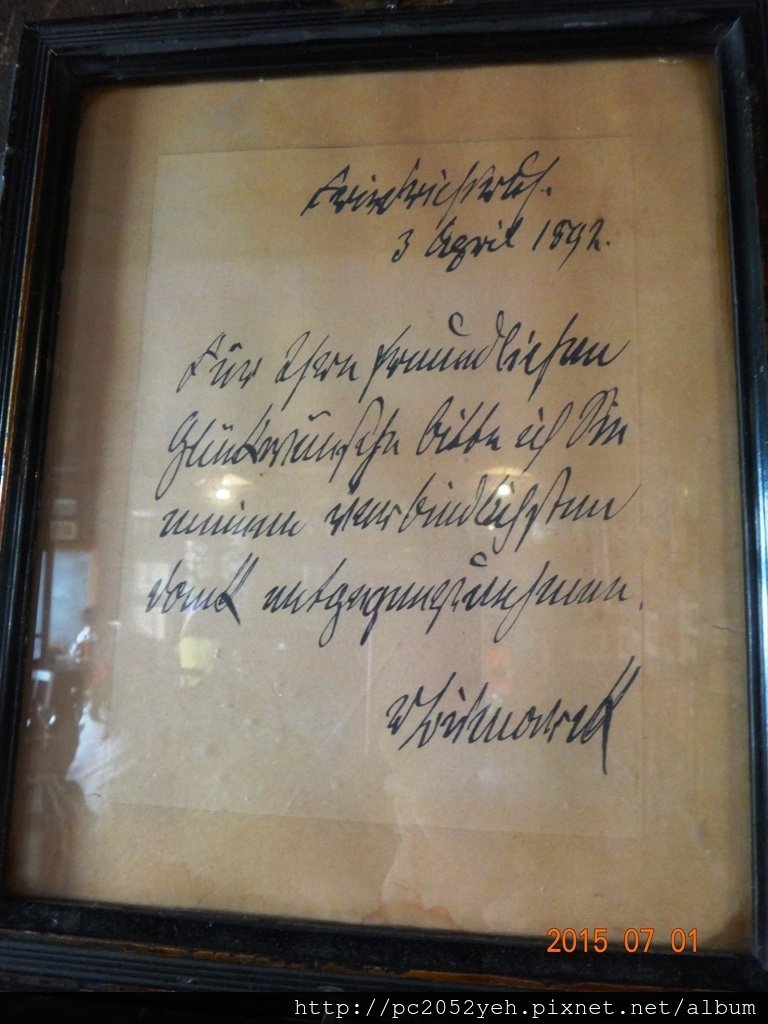 Friedrichsruh.
3 April 1892.
Für Ihren freundlichen
Glückwünsche bitte ich Sie
meinen verbindlichsten
Dank entgegenzunehmen.
v Bismarck
2015 07 01
http://pc2052yeh.pixnet.net/album